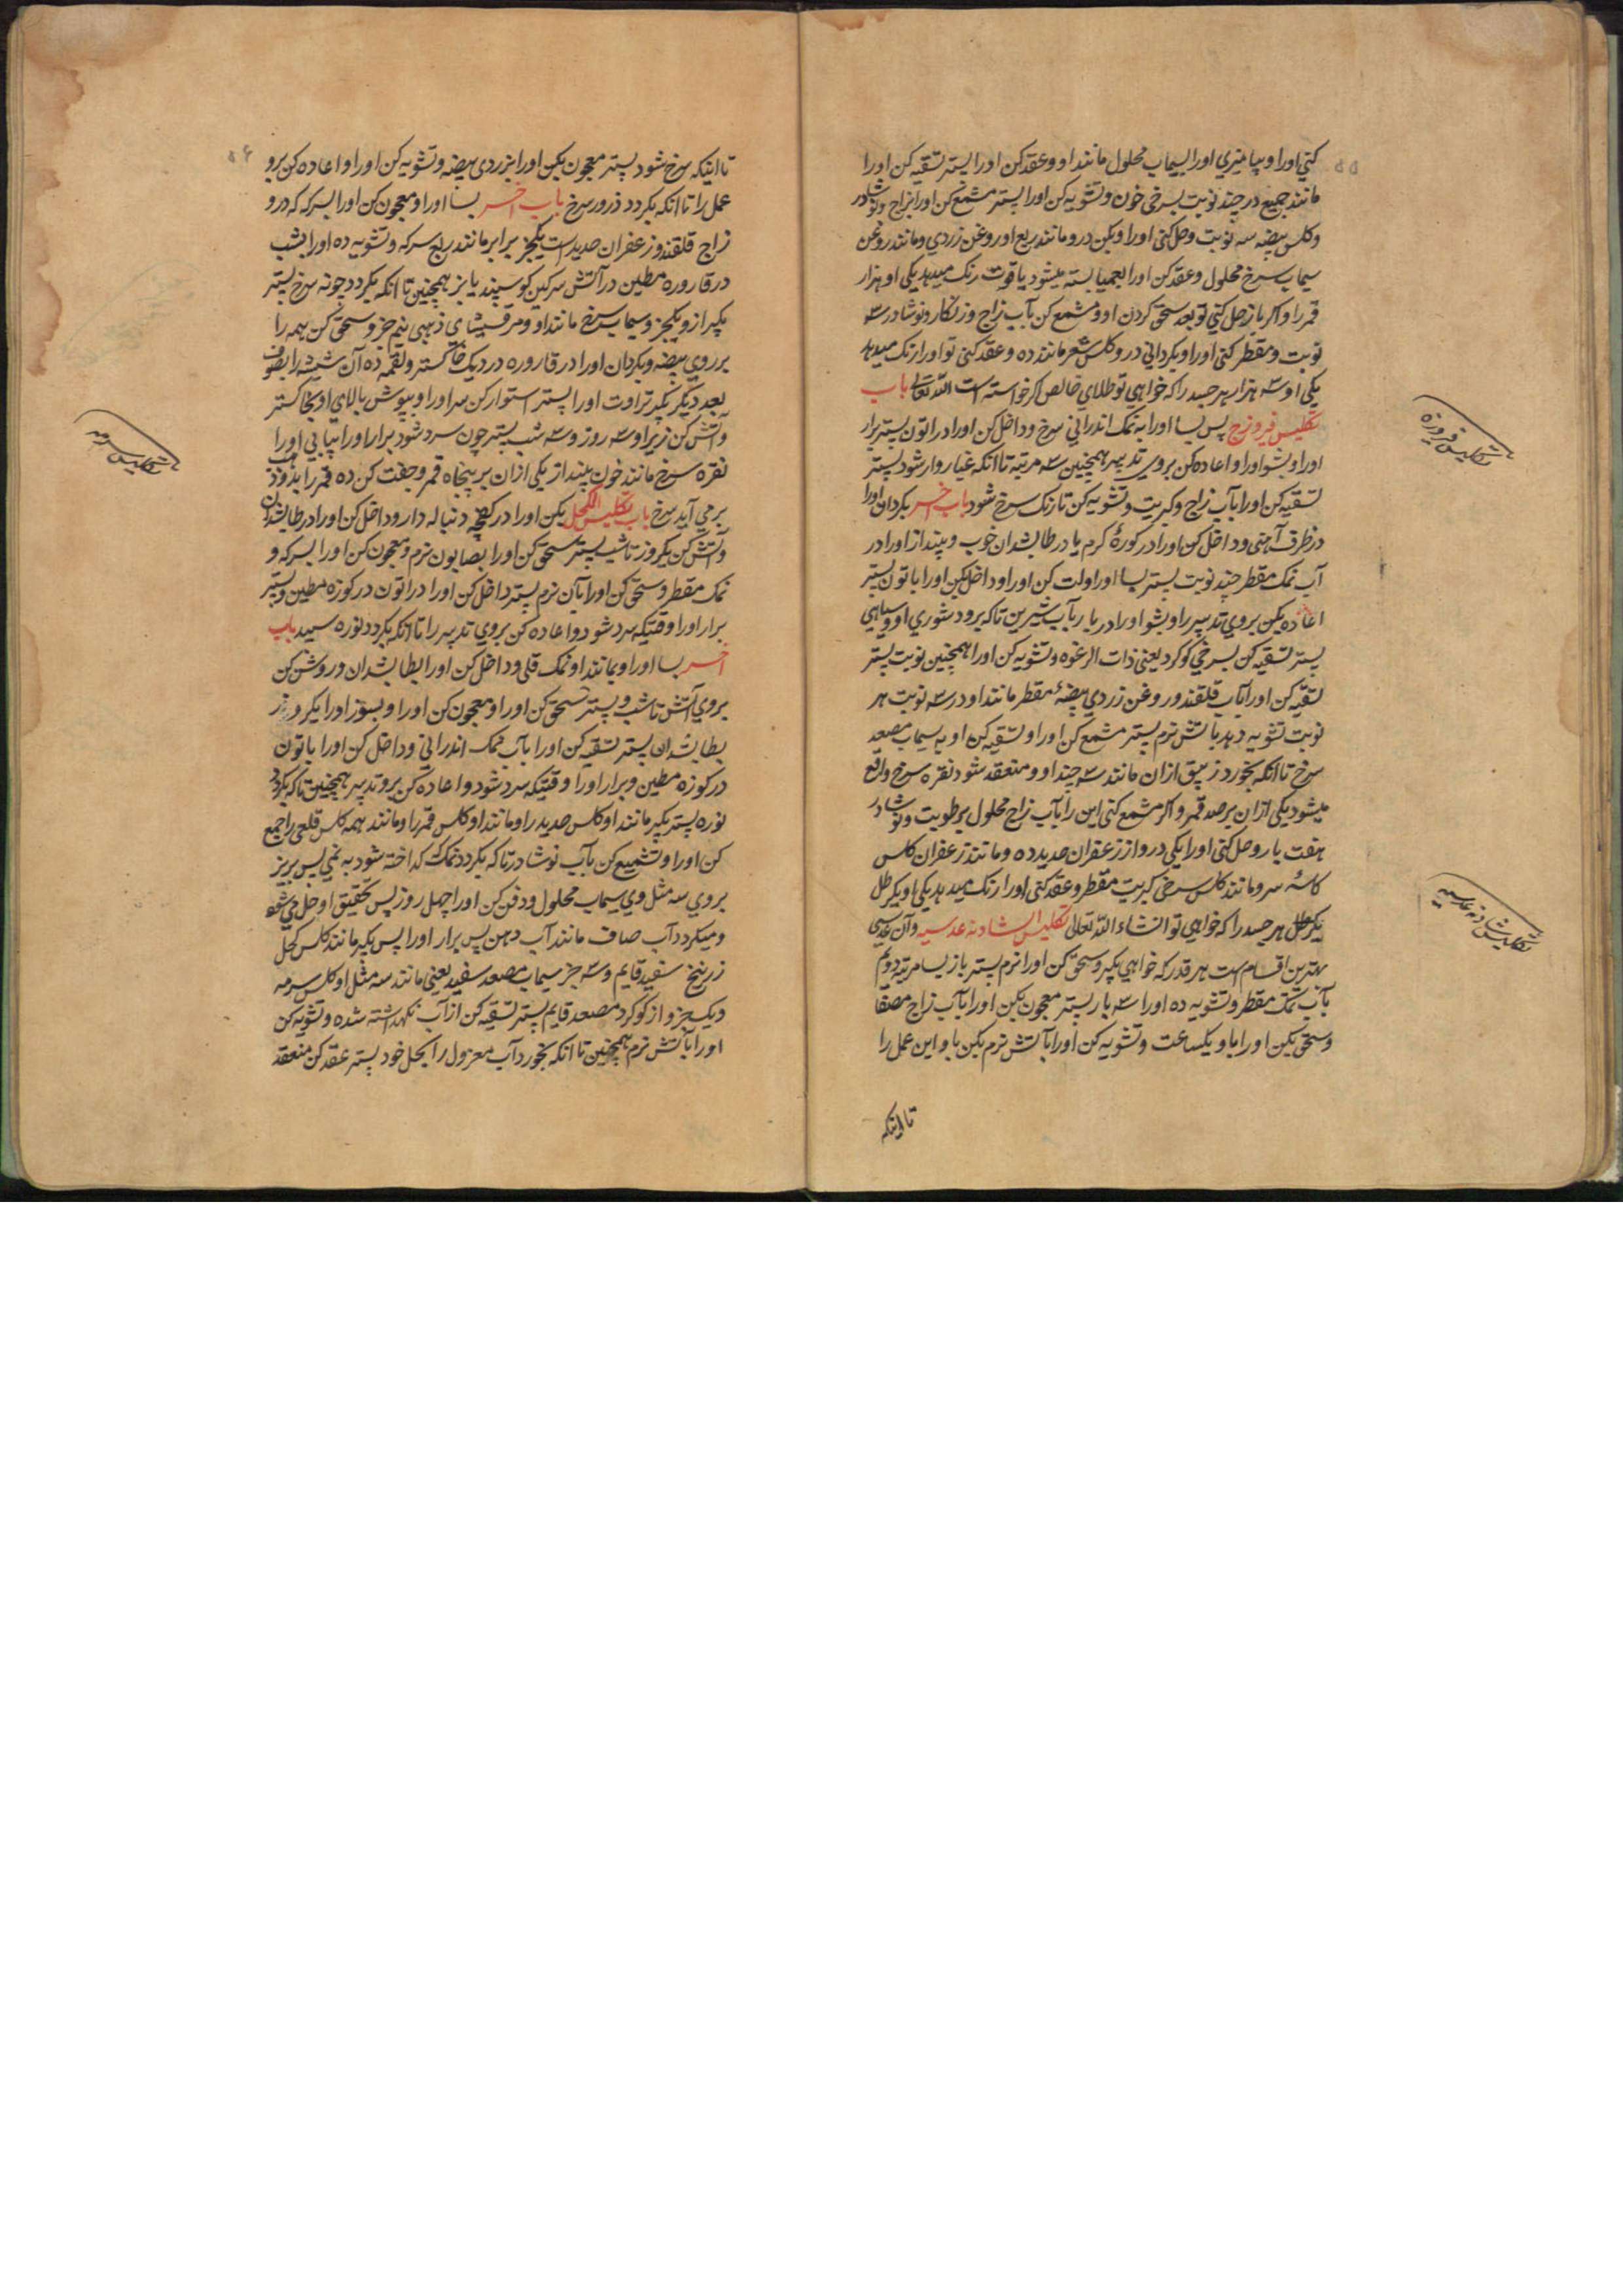 ۵۵
کنی اورا و بیامیزی اورا بسیماب محلول مانند او و عقد کن اورا پستر تسقیه کن اورا
مانند جمیع در چند نوبت بسرخی خون و تشویه کن اورا پستر مشمع کن اورا بزاج و نوشادر
و کلس بیضه سه نوبت و حل کنی اورا و بکن درو مانند ربع او روغن زردی و مانند روغن
سیماب سرخ محلول و عقد کن اورا بعمیا بسته میشود یاقوت رنک میدهد یکی او هزار
قمر را و اکر باز حل کنی تو بعد سحق کردن او و مشمع کن بآب زاج و زنکار و نوشادر سه
نوبت و مقطر کنی اورا و بکردانی درو کلس شعر مانند ده و عقد کنی تو اورا رنک میدهد
یکی او سه هزار هر جسد را که خواهی تو طلای خالص اکر خواسته است الله تعالی باب
تکلیس فیروزج پس بسا اورا به نمک اندرانی سرخ و داخل کن اورا در اتون پستر برار
اورا و بشو اورا و اعاده کن بروی تدبیر همچنین سه مرتبه تا آنکه غبار وار شود پستر
تسقیه کن اورا بآب زاج و کبریت و تشویه کن تا رنک سرخ شود باب اخر بکردان اورا
در ظرف آهنی و داخل کن اورا در کورهٔ کرم یا در طابشدان خوب و بینداز اورا در
آب نمک مقطر چند نوبت پستر بسا اورا و لت کن اورا و داخل بکن اورا باتون پستر
اعاده بکن بروی تدبیر را و بشو اورا در بار بآب شیرین تا که برود شوری او و سیاهی
پستر تسقیه کن بسرخی کوکرد یعنی ذات الرغوه و تشویه کن اورا همچنین نوبت پستر
تسقیه کن اورا بآب قلقند و روغن زردی بیضهٔ مقطر مانند او در سه نوبت هر
نوبت تشویه دهد باتش نرم پستر مشمع کن اورا و تسقیه کن او به سیماب مصعد
سرخ تا آنکه بخورد زیبق ازان مانند سه چند او و منعقد شود نقره سرخ واقع
میشود یکی ازان بر صد قمر و اکر مشمع کنی این را بآب زاج محلول برطوبت و نوشادر
هفت بار و حل کنی اورا یکی درو از زعفران حدید ده و مانند زعفران کلس
کاسهٔ سر و مانند کلس سرخی کبریت مقطر و عقد کنی اورا رنک میدهد یکی او یکرطل
یکرطل هر جسد را که خواهی تو انشاء الله تعالی تکلیس الشادنه عدسیه و آن عدسی
بهترین اقسام است هر قدر که خواهی بکیر و سحق کن اورا نرم پستر باز بسا مرتبه دویم
بآب نمک مقطر و تشویه ده اورا سه بار پستر معجون بکن اورا بآب زاج مصفا
و سحق بکن اورا باو یکساعت و تشویه کن اورا بآتش نرم بکن باو این عمل را
تا اینکه
تکلیس فیروزه
تکلیس شادنه عدسیه
۵۶
تا اینکه سرخ شود پستر معجون بکن اورا بزردی بیضه و تشویه کن اورا و اعاده کن برو
عمل را تا آنکه بکردد ذرور سرخ باب اخر بسا اورا و معجون کن اورا بسرکه که درو
زاج قلقند و زعفران حدید است یکجز برابر مانند ربع سرکه و تشویه ده اورا بشب
در قاروره مطین در آتش سرکین کوسپند یا بز همچنین تا آنکه بکردد چونه سرخ پستر
بکیر ازو یکجز و سیماب سرخ مانند او و مرقیشای ذهبی نیم جز و سحق کن همه را
بر روی بیضه و بکردان اورا در قاروره در دیک خاکستر و لقمه ده آن شیشه را بصوف
بعد دیگر بکیر تراوت اورا پستر استوار کن سر اورا و بپوش بالای او بخاکستر
و آتش کن زیر او سه روز و سه شب پستر چون سرد شود برار اورا بیابی اورا
نقره سرخ مانند خون بینداز یکی ازان بر پنجاه قمر و جفت کن ده قمر را بذهب
برمی آید سرخ باب تکلیس الکحل بکن اورا در کفچه دنباله دار و داخل کن اورا در طابشدان
و آتش کن یکروز تا شب پستر سحق کن اورا بصابون نرم و معجون کن اورا بسرکه و
نمک مقطر و سحق کن اورا بآن نرم پستر داخل کن اورا در اتون در کوزه مطین و پستر
برار اورا وقتیکه سرد شود و اعاده کن بروی تدبیر را تا آنکه بکردد نوره سپید باب
اخر بسا اورا و بمانند او نمک قلی و داخل کن اورا بطابشدان و روشن کن
بروی آتش تا شب و پستر سحق کن اورا و معجون کن اورا و بسوز اورا یکروز
بطابشدان پستر تسقیه کن اورا بآب نمک اندرانی و داخل کن اورا باتون
در کوزه مطین و برار اورا وقتیکه سرد شود و اعاده کن برو تدبیر همچنین تا که بکردد
نوره پستر بکیر مانند او کلس حدید را و مانند او کلس قمر را و مانند همه کلس قلعی را جمع
کن اورا و تشمیع کن بآب نوشادر تا که بکردد نمک که کداخته شود به نمی پس بریز
بروی سه مثل وی سیماب محلول و دفن کن اورا چهل روز پس تحقیق او حل می شود
و میکردد آب صاف مانند آب دهن پس برار اورا پس بکیر مانند کلس کحل
زرنیخ سفید قایم و سه جز سیماب مصعد سفید یعنی مانند سه مثل او کلس سرمه
و یک جزو از کوکرد مصعد قایم پستر تسقیه کن از آب نکهداشته شده و تشویه کن
اورا بآتش نرم همچنین تا آنکه بخورد آب معزول را بکحل خود پستر عقد کن منعقد
تکلیس سرمه